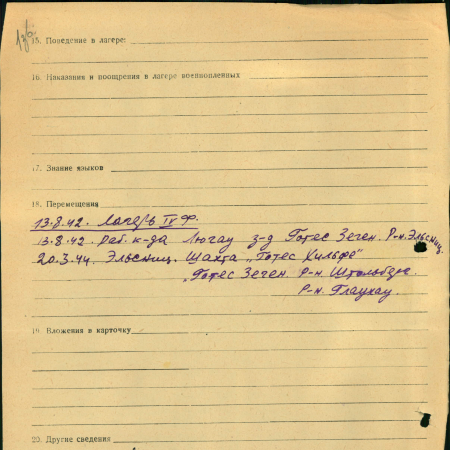 136
15. Поведение в лагере:
16. Наказания и поощрения в лагере военнопленных
17. Знание языков
18. Перемещения
13.8.42. Лагерь IV Ф.
13.8.42. Раб. к-да Люгау з-д Готес Зеген. Р-н. Эльсниц.
20.3.44. Эльсниц. Шахта „Готес Хильфе"
"Готес Зеген. Р-н Штольберг
Р-н. Глаухау.
19. Вложения в карточку
20. Другие сведения